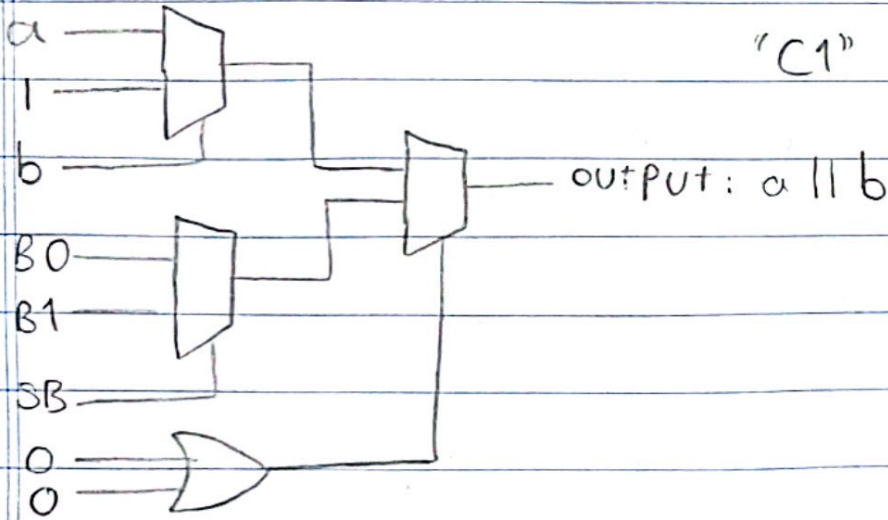 a
"C1"
1
b
output: a || b
B0
B1
SB
0
0